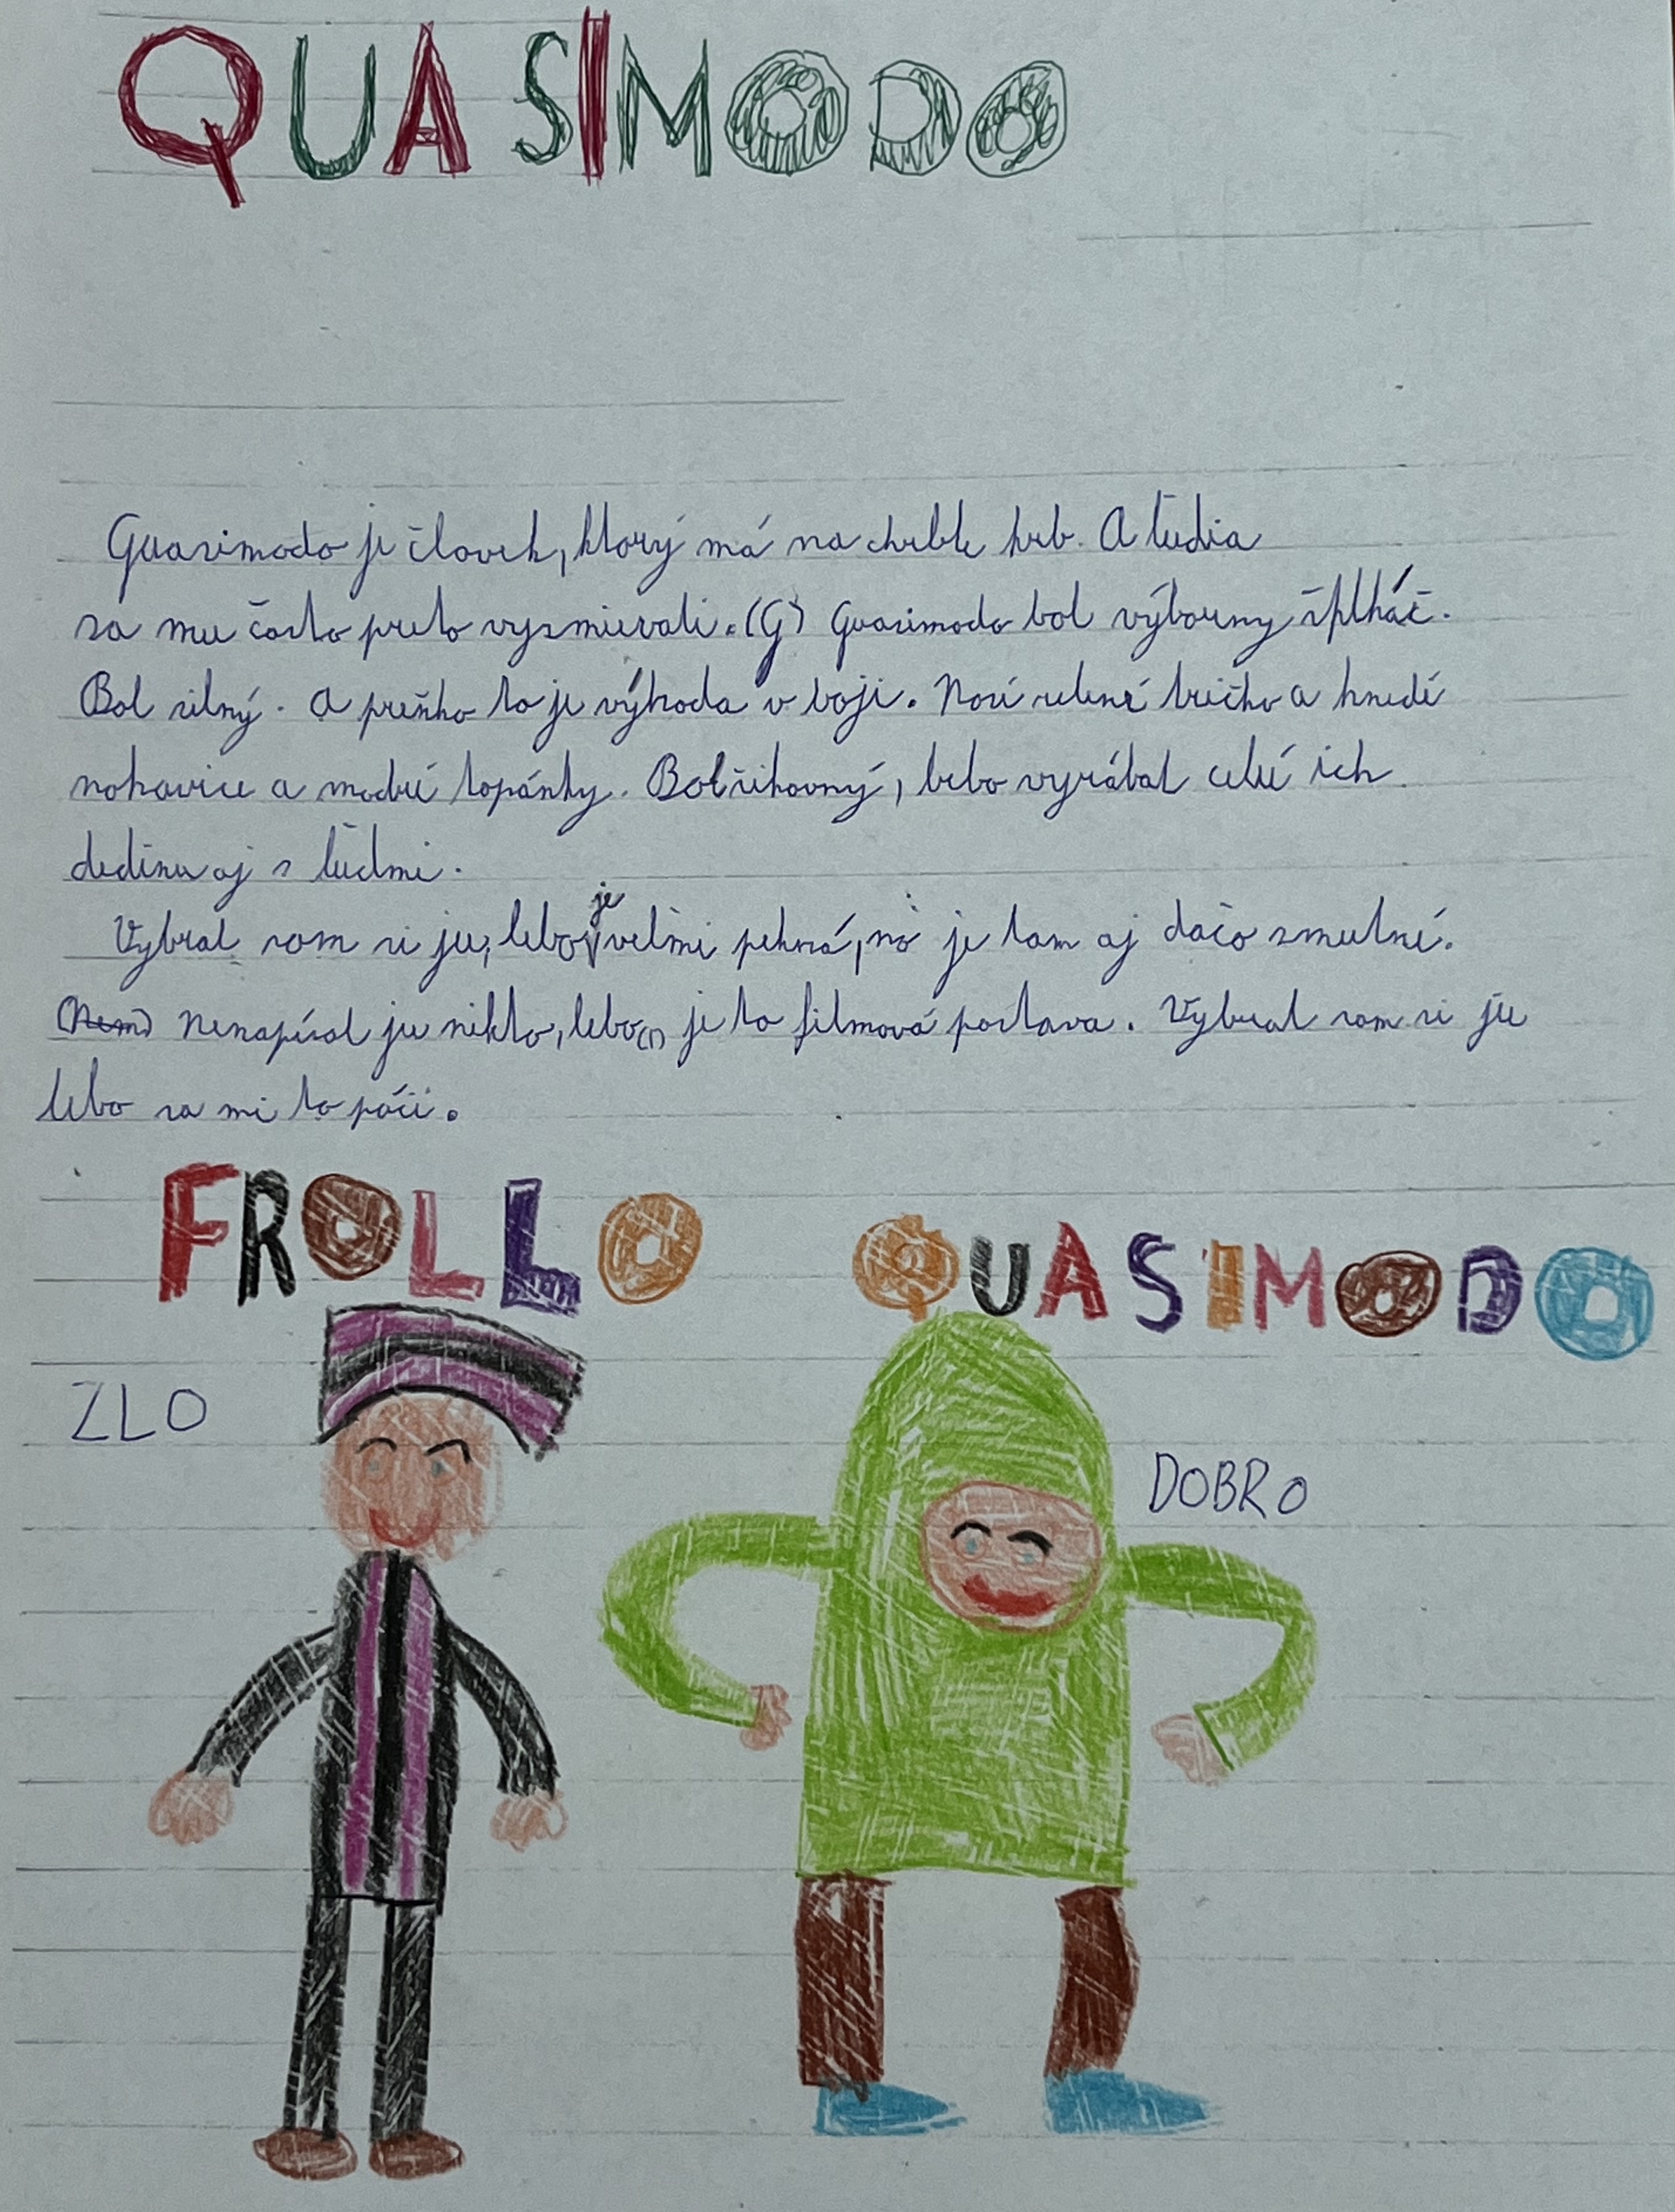 QUASIMODO
Quasimodo je človek, ktorý má na chrbte hrb. A ľudia
sa mu často preto vysmievali. (G) Quasimodo bol výborny šplháč.
Bol silný. A preňho to je výhoda v boji. Nosí zelené tričko a hnedé
nohavice a modré topánky. Bol šikovný, lebo vyrábal celé ich
dedinu aj s ľuďmi.
Vybral som si ju, lebo je veľmi pekná, no je tam aj dačo smutné.
(Nem) Nenapísal ju nikto, lebo je to filmová postava. Vybral som si ju
lebo sa mi to páči.
FROLLO QUASIMODO
ZLO
DOBRO